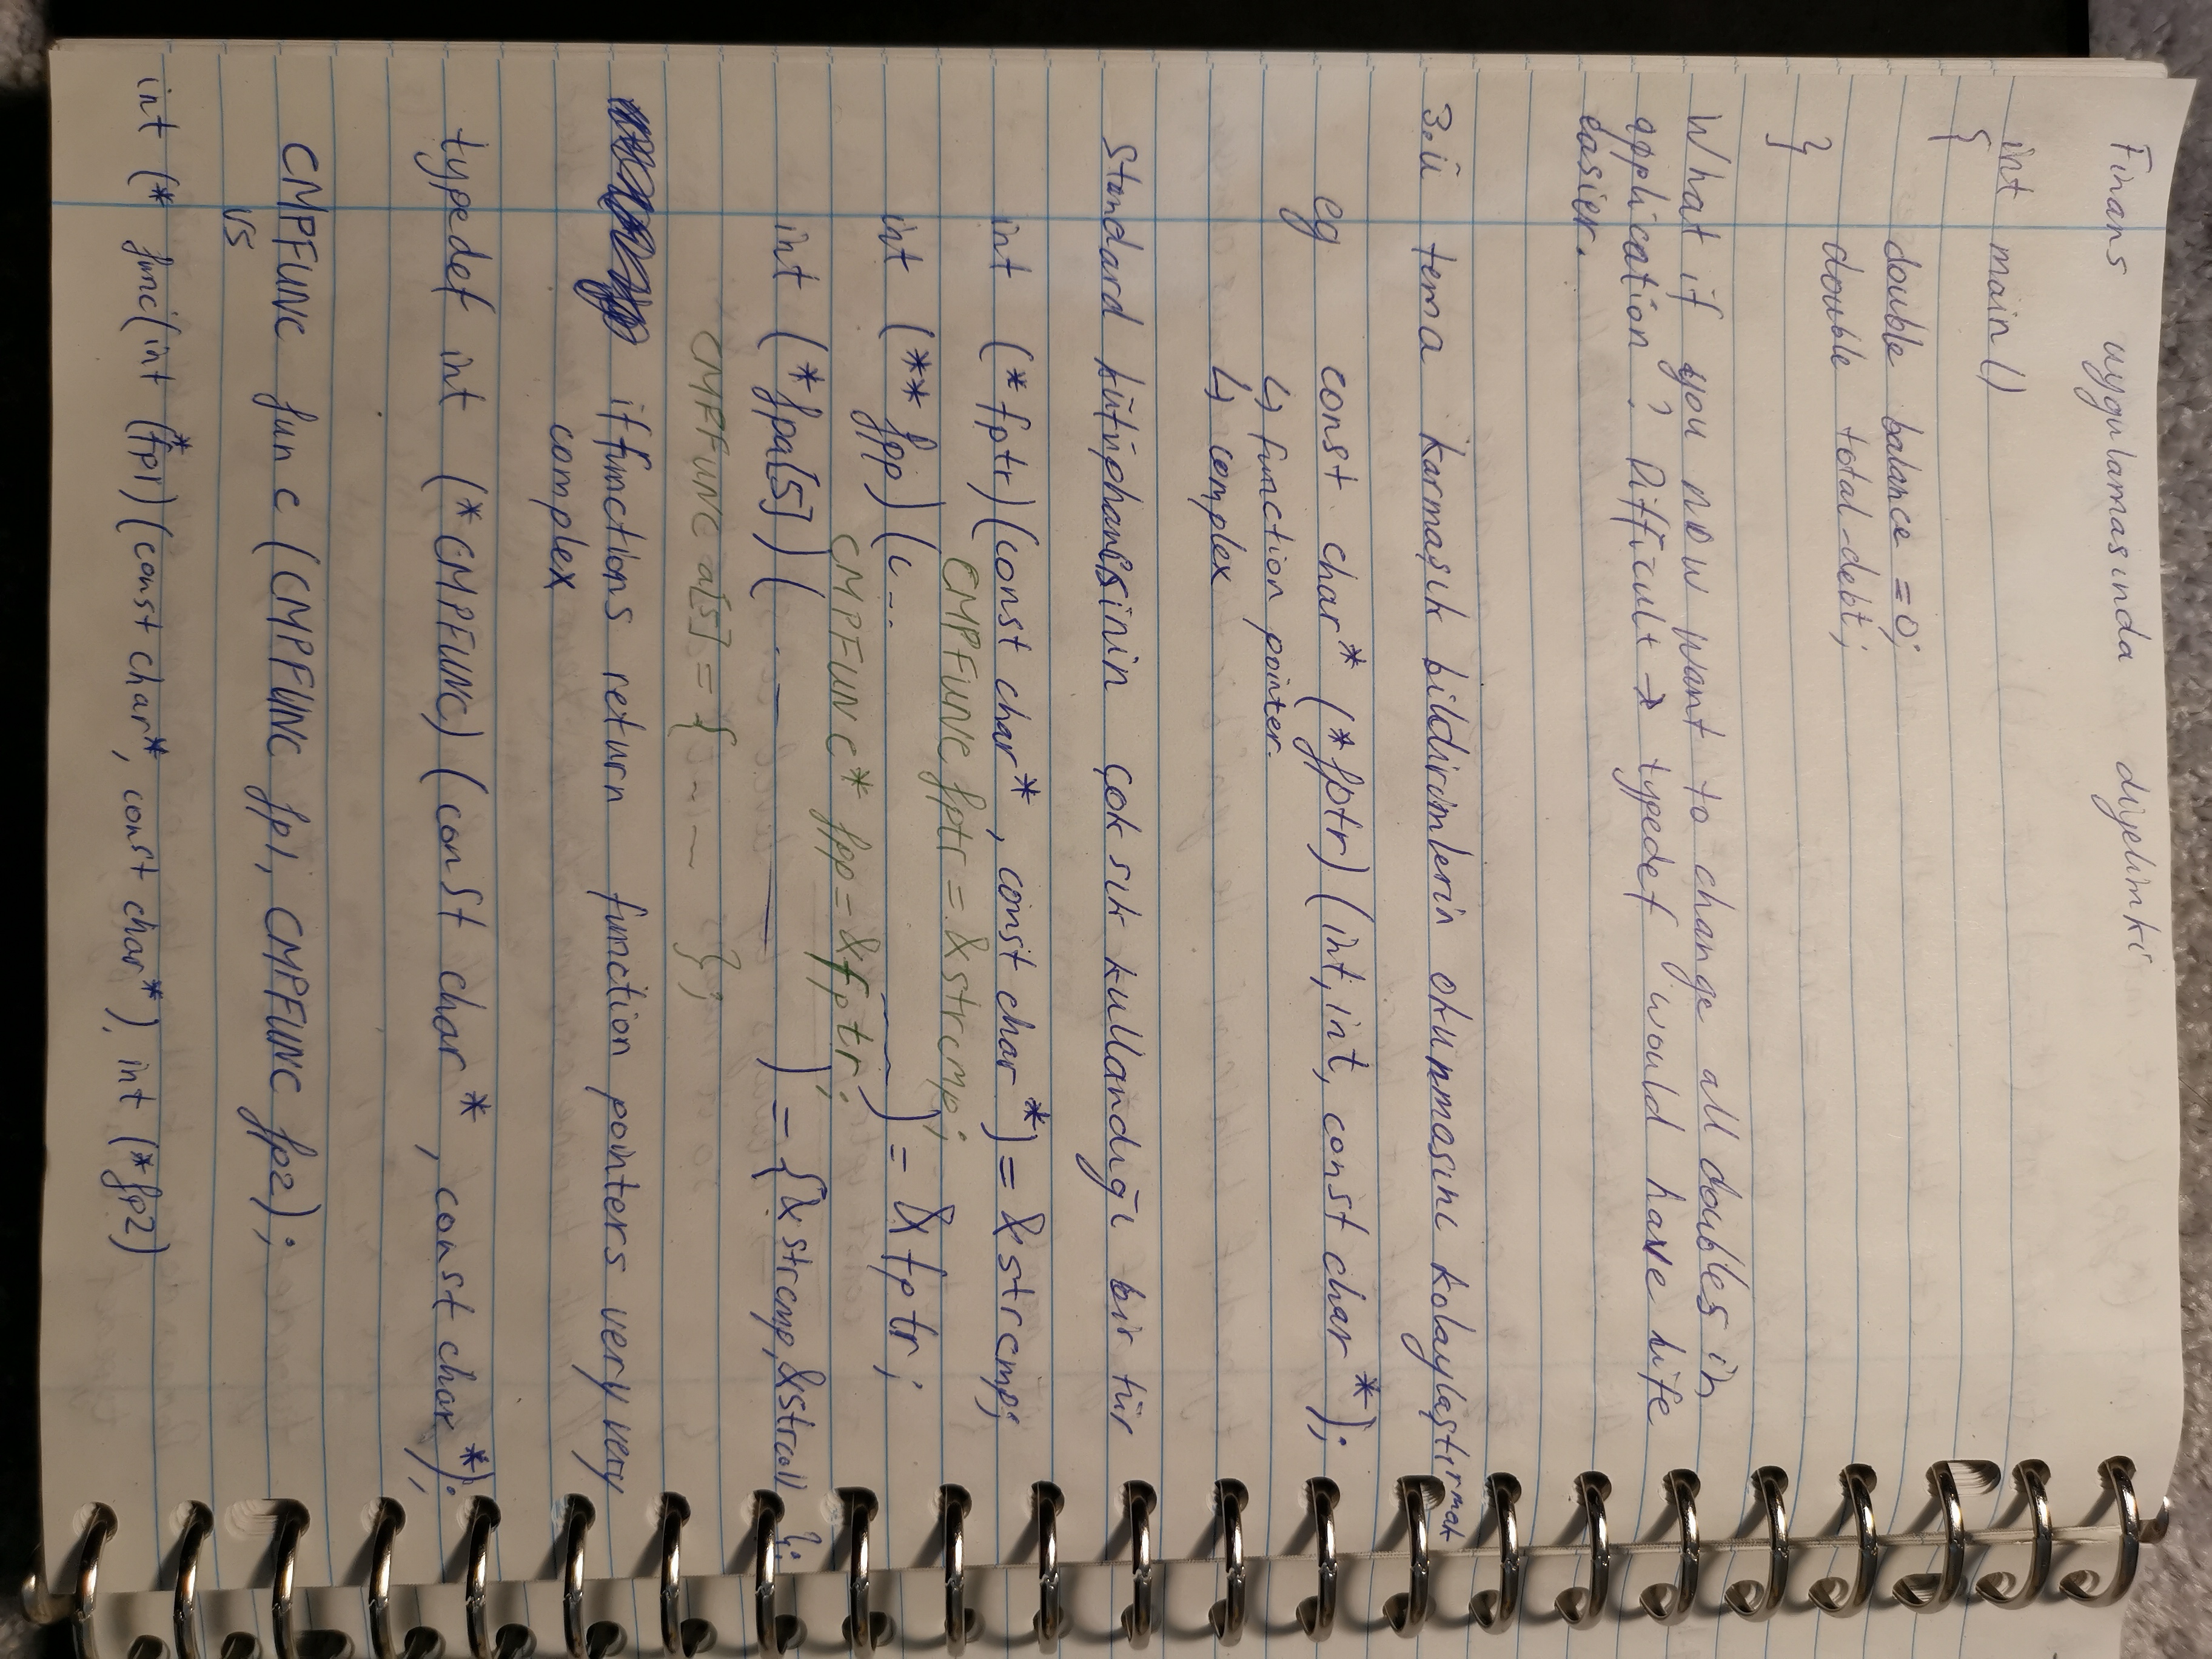 Finans uygulamasında diyelimki
int main()
{
double balance = 0;
double total-debt;
}
What if you now want to change all doubles in
application? Difficult → typedef would have life
easier.
3.ü tema karmaşık bildirimlerin okunmasını kolaylaştırmak
eg const char* (*fptr)(int, int, const char*);
↳ function pointer.
↳ complex
Standard kütüphanesinin çok sık kullandığı bir tür
int (*fptr)(const char*, const char*) = &strcmp;
CMPFUNC fptr = &strcmp;
int (** fpp)(c... __) = &fptr;
CMPFUNC* fpp = &fptr;
int (*fpa[5])(. __ __) = {&strcmp, &strcoll };
CMPFUNC a[5] = { .. __ };
if functions return function pointers very very
complex
typedef int (*CMPFUNC) (const char*, const char*);
CMPFUNC func (CMPFUNC fp1, CMPFUNC fp2);
vs
int (* func(int (*fp1)(const char*, const char*), int (*fp2)